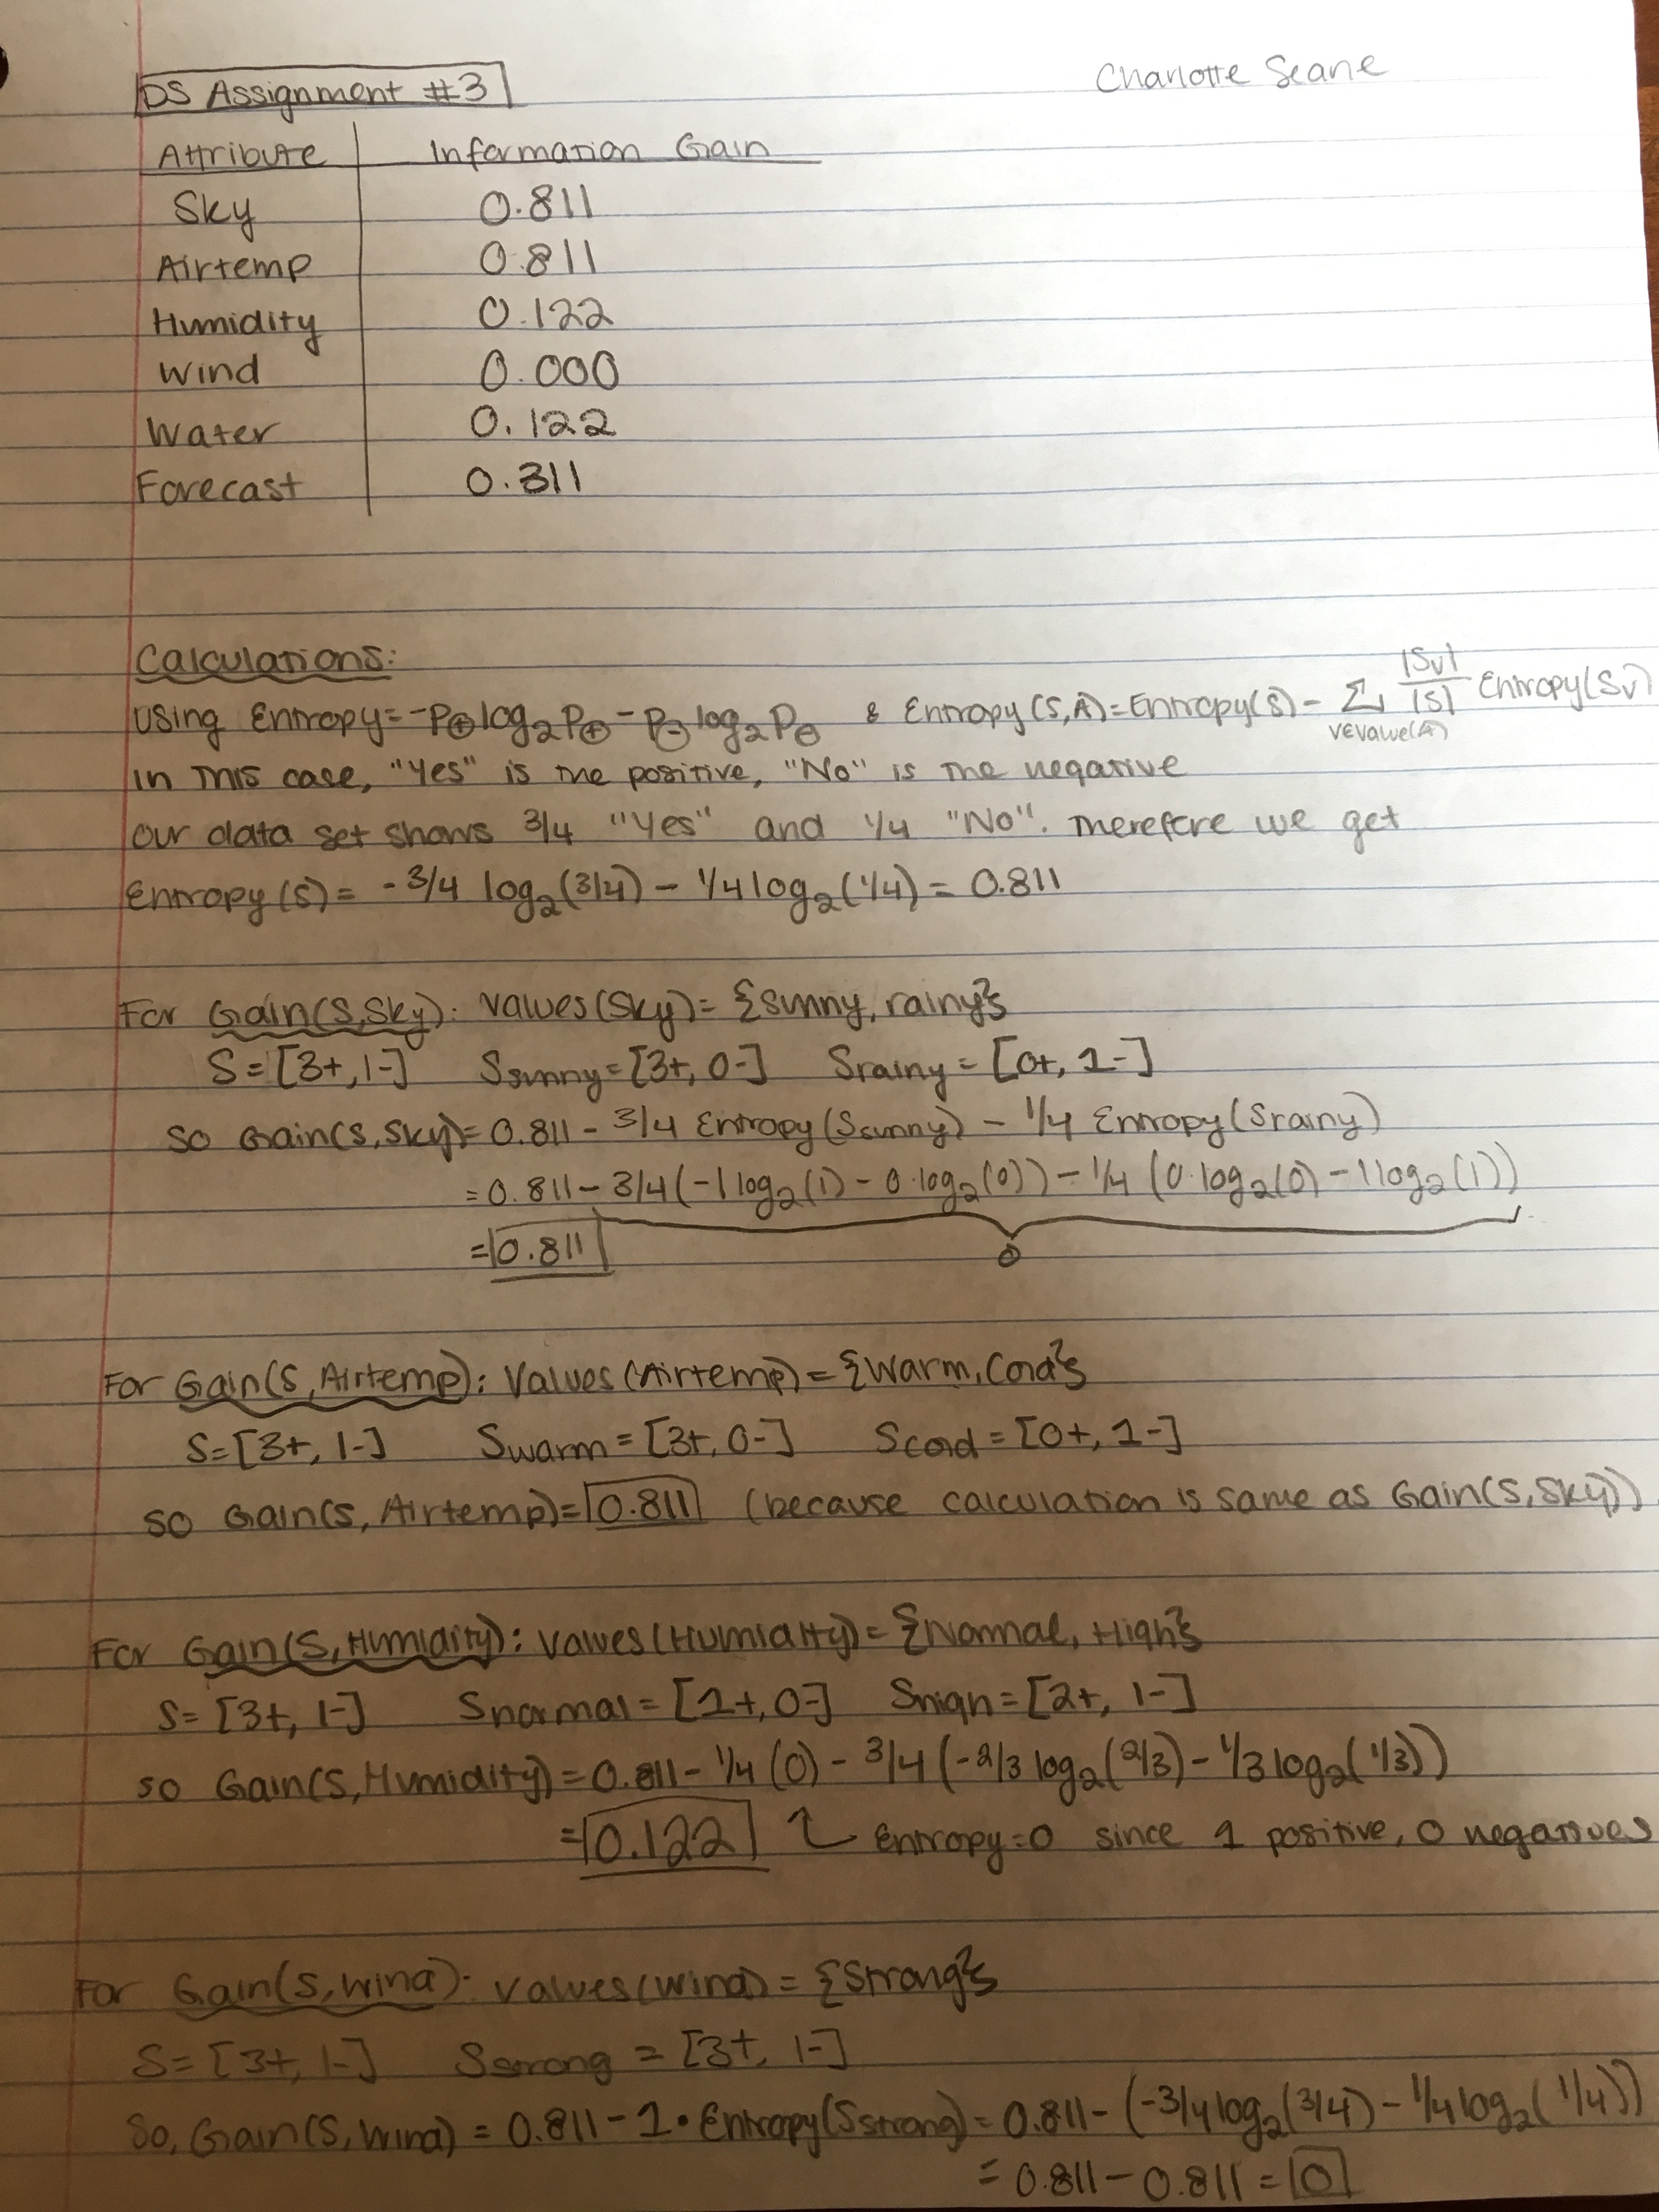 DS Assignment #3
Charlotte Seane
Attribute | Information Gain
Sky 0.811
Airtemp 0.811
Humidity 0.122
Wind 0.000
Water 0.122
Forecast 0.311
Calculations:
Using Entropy = -P⊕log₂P⊕ - P⊖log₂P⊖ & Entropy(S,A)=Entropy(S) - Σ v∈Value(A) |Sv|/|S| Entropy(Sv)
In this case, "Yes" is the positive, "No" is the negative
Our data set shows 3/4 "Yes" and 1/4 "No". Therefore we get
Entropy(S) = -3/4 log₂(3/4) - 1/4 log₂(1/4) = 0.811
For Gain(S,Sky): Values(Sky)= {Sunny, rainy}
S=[3+,1-] Ssunny=[3+, 0-] Srainy = [0+, 1-]
So Gain(S,Sky)= 0.811 - 3/4 Entropy(Ssunny) - 1/4 Entropy(Srainy)
= 0.811 - 3/4(-1log₂(1) - 0·log₂(0)) - 1/4 (0·log₂(0) - 1log₂(1))
= 0.811 0
For Gain(S,Airtemp): Values(Airtemp) = {Warm, Cold}
S=[3+, 1-] Swarm = [3+, 0-] Scold = [0+, 1-]
So Gain(S, Airtemp)= 0.811 (because calculation is same as Gain(S,Sky))
For Gain(S,Humidity): Values(Humidity) = {Normal, High}
S= [3+, 1-] Snormal = [1+, 0-] Shigh = [2+, 1-]
So Gain(S,Humidity) = 0.811 - 1/4 (0) - 3/4 (-2/3 log₂(2/3) - 1/3 log₂(1/3))
= 0.122 Entropy=0 since 1 positive, 0 negatives
For Gain(S,Wind): Values(Wind) = {Strong}
S= [3+, 1-] Sstrong = [3+, 1-]
So, Gain(S,Wind) = 0.811 - 1 • Entropy(Sstrong) = 0.811 - (-3/4log₂(3/4) - 1/4log₂(1/4))
= 0.811 - 0.811 = 0